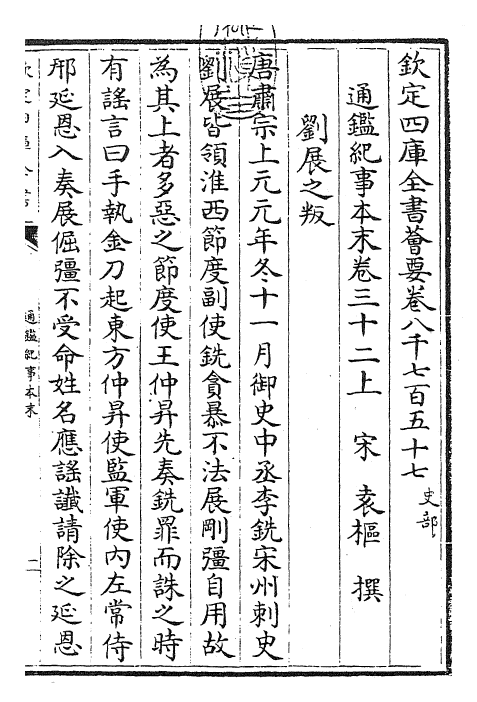 欽定四庫全書薈要卷八千七百五十七 史部
通鑑紀事本末卷三十二上 宋 袁樞 撰
劉展之叛
唐肅宗上元元年冬十一月御史中丞李銑宋州刺史
劉展皆領淮西節度副使銑貪暴不法展剛彊自用故
為其上者多惡之節度使王仲昇先奏銑罪而誅之時
有謠言曰手執金刀起東方仲昇使監軍使內左常侍
邢延恩入奏展倔彊不受命姓名應謠讖請除之延恩
通鑑紀事本末